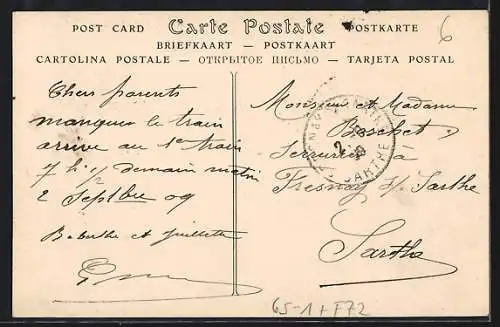 POST CARD Carte Postale POSTKARTE
6
BRIEFKAART — POSTKAART
CARTOLINA POSTALE — ОТКРЫТОЕ ПИСЬМО — TARJETA POSTAL
Chers parents
manquer le train
arrive au 1e train
7 h 1/2 demain matin
2 Septbre 09
et Juillette
Monsieur et Madame
Boschet
Serrurier à
Fresnay s/ Sarthe
Sarthe
SARTHE
65-1+F72